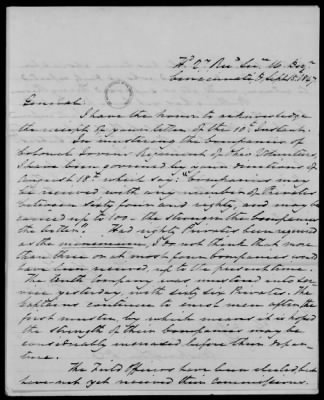 Cincinnati O, Sept 15. 1847
General:
I have the honor to acknowledge
the receipt of your letter of the 10th Instant.
In mustering the companies of
Colonel Regiment of Ohio Volunteers,
I have been governed by your directions of
August 18th which say: "Companies may
be received with any number of Privates
between sixty four and eighty, and may be
carried up to 100 – the stronger the companies
the better." Had eighty Privates been required
as the minimum, I do not think that more
than three or at most four companies would
have been received, up to the present time.
The tenth Company was mustered into ser-
vice yesterday, with sixty six Privates. The
Captains continue to enlist men after the
first muster, by which means it is hoped
the strength of their Companies may be
considerably increased before their depar-
ture.
The Field Officers have been elected, but
have not yet received their Commissions.